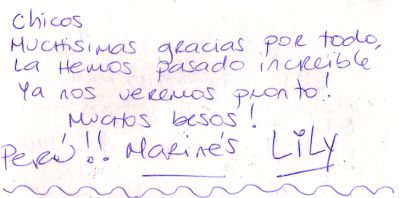 Chicos
Muchisimas gracias por todo,
La Hemos pasado increible
Ya nos veremos pronto!
Muchos besos!
Perú!! Marinés LiLY